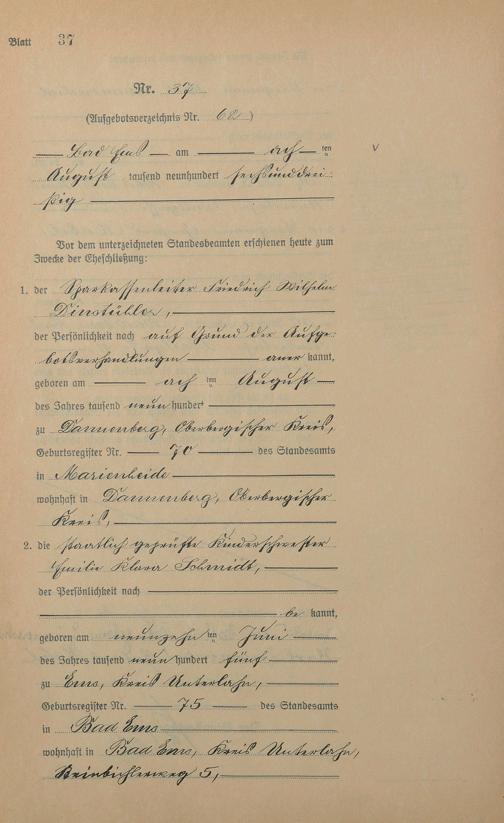 Blatt 37
Nr. 37
(Aufgebotsverzeichnis Nr. 62)
Bad Ems am acht ten
August tausend neunhundert sechsunddrei-
ßig
Vor dem unterzeichneten Standesbeamten erschienen heute zum
Zwecke der Eheschließung:
1. der Sparkassenleiter Friedrich Wilhelm
Dinstühler,
der Persönlichkeit nach auf Grund der Aufge-
botsverhandlungen aner kannt,
geboren am ach ten August
des Jahres tausend neun hundert
zu Dannenberg, Oberbergischer Kreis,
Geburtsregister Nr. 70 des Standesamts
in Marienheide
wohnhaft in Dannenberg, Oberbergischer
Kreis,
2. die staatlich geprüfte Kinderschwester
Emilie Klara Schmidt,
der Persönlichkeit nach
be kannt,
geboren am neunzehn ten Juni
des Jahres tausend neun hundert fünf
zu Ems, Kreis Unterlahn,
Geburtsregister Nr. 75 des Standesamts
in Bad Ems
wohnhaft in Bad Ems, Kreis Unterlahn,
Steinbichlerweg 5,